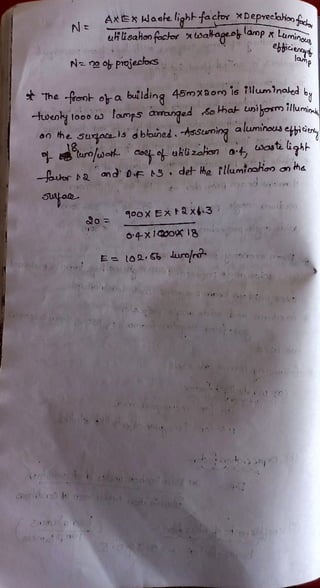 N = A x E x Waste light factor x Depreciation factor
utilisation factor x wattage of lamp x Luminous efficiency of lamp
N = no of projectors
* The front of a building 45m x 20m is illuminated by
twenty 1000 w lamps arranged so that uniform illumina
on the surface is obtained. Assuming a luminous efficiency
of 18 lum/watt coef of utilization 0.4, waste light
factor 1.2 and D.F 1.3. det the illumination on the
surface
20 = 900 x E x 1.2 x 1.3
0.4 x 1000 x 18
E = 102.56 lum/m²